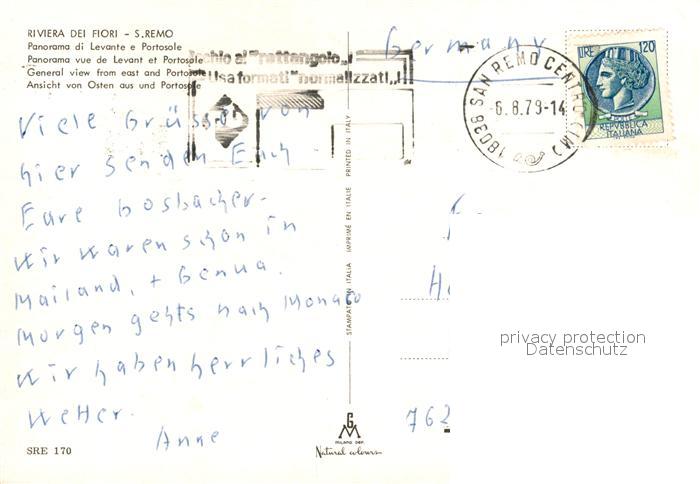 RIVIERA DEI FIORI - S.REMO
Panorama di Levante e Portosole
Panorama vue de Levant et Portosole
General view from east and Portosole
Ansicht von Osten aus und Portosole
rischio al "rettangolo"
Usa formati "normalizzati"
Germany
18038 SAN REMO CENTRO (IM)
-6.8.79-14
LIRE 120
REPVBBLICA
ITALIANA
Viele Grüsse von
hier senden Euch
Eure Bosbacher.
Wir waren schon in
Mailand, + Genua.
Morgen gehts nach Monaco
Wir haben herrliches
Wetter.
Anne
STAMPATO IN ITALIA IMPRIMÉ EN ITALIE PRINTED IN ITALY
762
privacy protection
Datenschutz
MILANO DEP.
Natural colours
SRE 170